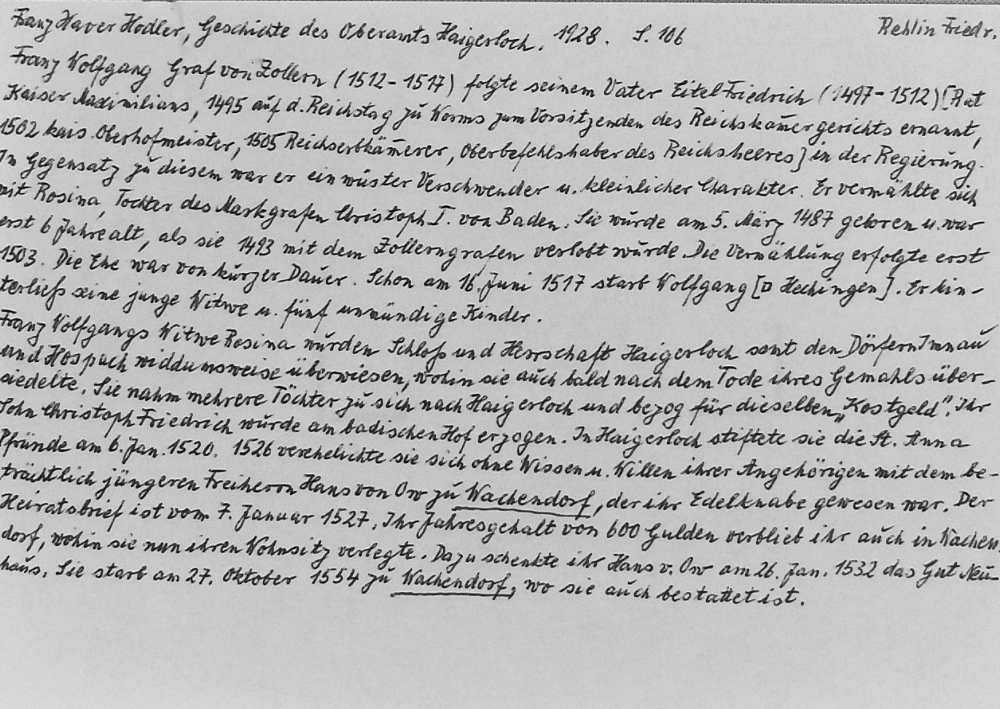 Franz Xaver Hodler, Geschichte des Oberamts Haigerloch. 1928. S. 106 Rehlin Friedr.
Franz Wolfgang Graf von Zollern (1512-1517) folgte seinem Vater Eitel Friedrich (1497-1512) [Rat
Kaiser Maximilians, 1495 auf d. Reichstag zu Worms zum Vorsitzenden des Reichskam̄ergerichts ernannt,
1502 kais. Oberhofmeister, 1505 Reichserbkäm̄erer, Oberbefehlshaber des Reichsheeres] in der Regierung.
In Gegensatz zu diesem war er ein wüster Verschwender u. kleinlicher Charakter. Er vermählte sich
mit Rosina, Tochter des Markgrafen Christoph I. von Baden. Sie wurde am 5. März 1487 geboren u. war
erst 6 Jahre alt, als sie 1493 mit dem Zollerngrafen verlobt wurde. Die Vermählung erfolgte erst
1503. Die Ehe war von kurzer Dauer. Schon am 16. Juni 1517 starb Wolfgang [¤ Hechingen]. Er hin-
terließ seine junge Witwe u. fünf unmündige Kinder.
Franz Wolfgangs Witwe Rosina wurden Schloß und Herrschaft Haigerloch samt den Dörfern Imnau
und Hospach widdumsweise überwiesen, wohin sie auch bald nach dem Tode ihres Gemahls über-
siedelte. Sie nahm mehrere Töchter zu sich nach Haigerloch und bezog für dieselben „Kostgeld". Ihr
Sohn Christoph Friedrich wurde am badischen Hof erzogen. In Haigerloch stiftete sie die St. Anna
Pfründe am 6. Jan. 1520. 1526 verehelichte sie sich ohne Wissen u. Willen ihrer Angehörigen mit dem be-
trächtlich jüngeren Freiherrn Hans von Ow zu Wachendorf, der ihr Edelknabe gewesen war. Der
Heiratsbrief ist vom 7. Januar 1527. Ihr Jahresgehalt von 600 Gulden verblieb ihr auch in Wachen
dorf, wohin sie nun ihren Wohnsitz verlegte. Dazu schenkte ihr Hans v. Ow am 26. Jan. 1532 das Gut Neu-
haus. Sie starb am 27. Oktober 1554 zu Wachendorf, wo sie auch bestattet ist.